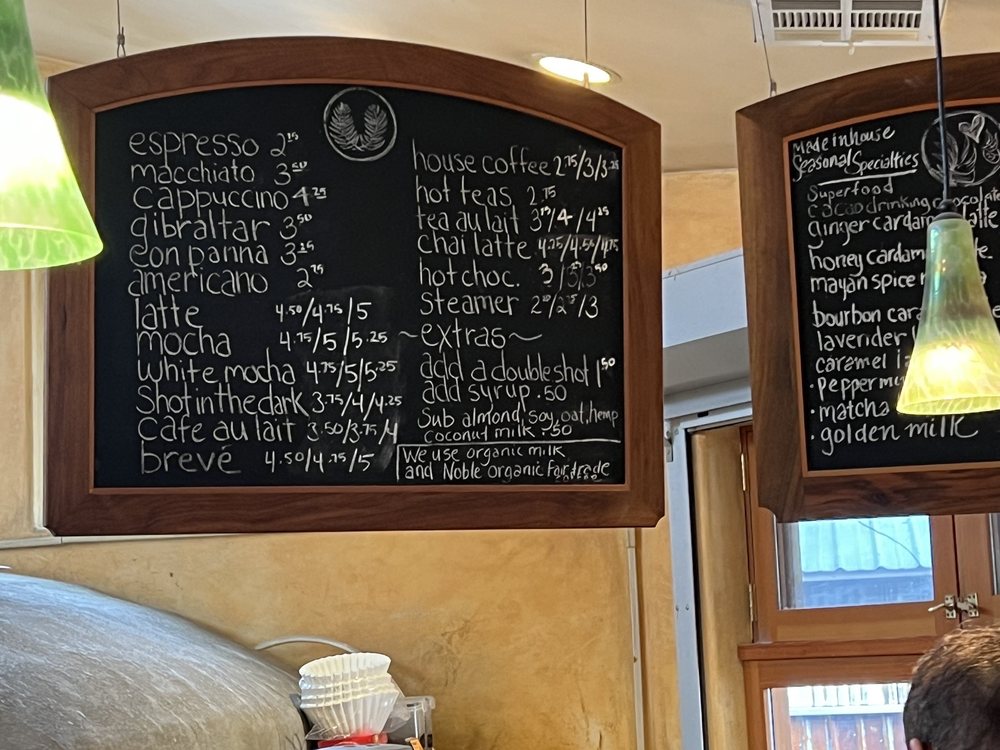 espresso 2.75
macchiato 3.50
cappuccino 4.25
gibraltar 3.50
con panna 3.25
americano 2.75
latte 4.50/4.75/5
mocha 4.75/5/5.25
white mocha 4.75/5/5.25
Shot in the dark 3.75/4/4.25
cafe au lait 3.50/3.75/4
brevé 4.50/4.75/5
house coffee 2.75/3/3.25
hot teas 2.75
tea au lait 3.75/4/4.25
chai latte 4.25/4.50/4.75
hot choc. 3
steamer
~extras~
add a double shot 1.50
add syrup .50
Sub almond, soy, oat, hemp
coconut milk .50
We use organic milk
and Noble organic fairtrade
coffee
Made in house
Seasonal Specialties
Superfood
cacao drinking chocolate
ginger cardamom latte
honey cardam
mayan spice
bourbon
lavender
caramel
• pepperm
• matcha
• golden milk